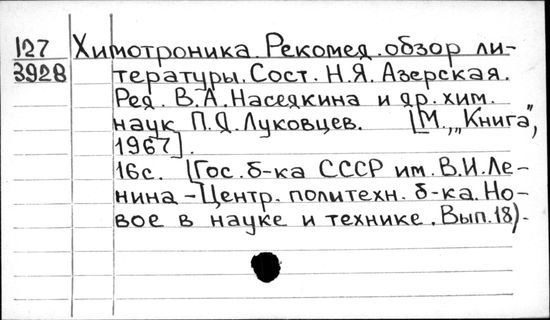 127 Химотроника. Рекомед. обзор ли-
3928 тературы. Сост. Н.Я. Азерская.
Ред. В.А. Наседкина и др. хим.
наук П.Д. Луковцев. [М., „Книга",
1967].
16с. (Гос. б-ка СССР им. В.И. Ле-
нина. - Центр. политехн. б-ка. Но-
вое в науке и технике. Вып. 18).